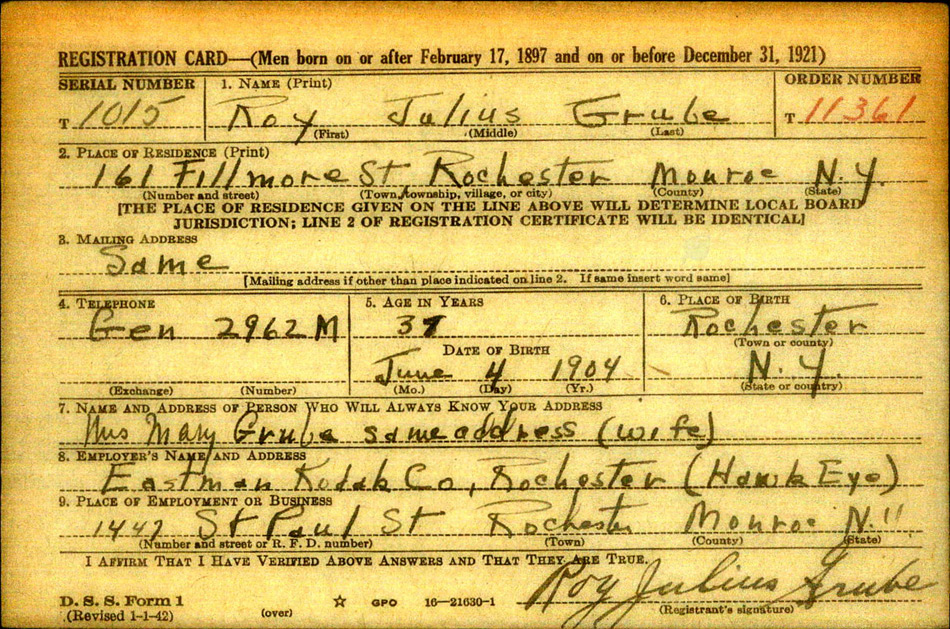 REGISTRATION CARD—(Men born on or after February 17, 1897 and on or before December 31, 1921)
SERIAL NUMBER 1. NAME (Print) ORDER NUMBER
T 1015 Roy Julius Grube T 11361
(First) (Middle) (Last)
2. PLACE OF RESIDENCE (Print)
161 Fillmore St Rochester Monroe N.Y.
(Number and street) (Town, township, village, or city) (County) (State)
[THE PLACE OF RESIDENCE GIVEN ON THE LINE ABOVE WILL DETERMINE LOCAL BOARD
JURISDICTION; LINE 2 OF REGISTRATION CERTIFICATE WILL BE IDENTICAL]
3. MAILING ADDRESS
Same
[Mailing address if other than place indicated on line 2. If same insert word same]
4. TELEPHONE 5. AGE IN YEARS 6. PLACE OF BIRTH
Gen 2962 M 37 Rochester
(Town or county)
DATE OF BIRTH
June 4 1904 N.Y.
(Exchange) (Number) (Mo.) (Day) (Yr.) (State or country)
7. NAME AND ADDRESS OF PERSON WHO WILL ALWAYS KNOW YOUR ADDRESS
Mrs Mary Grube same address (wife)
8. EMPLOYER'S NAME AND ADDRESS
Eastman Kodak Co, Rochester (Hawk Eye)
9. PLACE OF EMPLOYMENT OR BUSINESS
1447 St Paul St Rochester Monroe N.Y
(Number and street or R. F. D. number) (Town) (County) (State)
I AFFIRM THAT I HAVE VERIFIED ABOVE ANSWERS AND THAT THEY ARE TRUE.
Roy Julius Grube
D. S. S. Form 1
(Revised 1-1-42) (over) ☆ GPO 16—21630-1 (Registrant's signature)